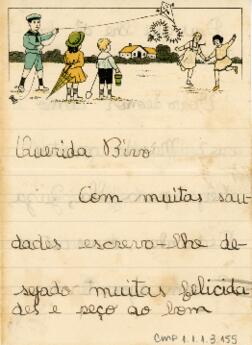 Querida Bivó
Com muitas sau-
dades escrevo-lhe de-
sejado muitas felicida
des e peço ao bom
CMP 1.1.1.3.155